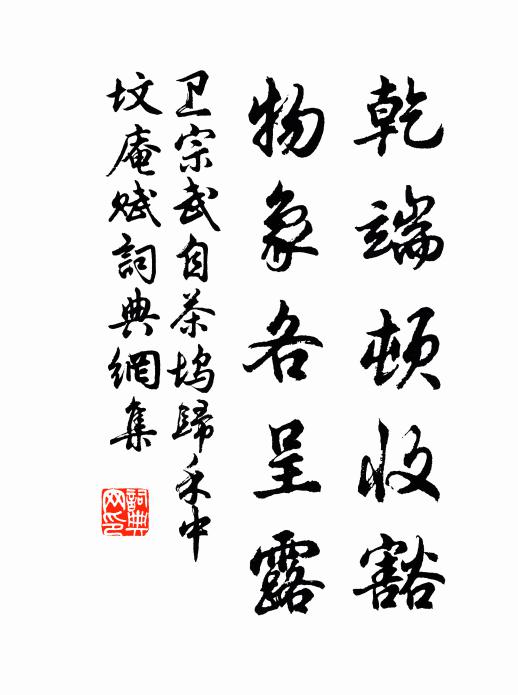 乾端頓收豁
物象各呈露
卫宗武自茶坞歸禾中
坟庵赋詞典網集
詞典网印